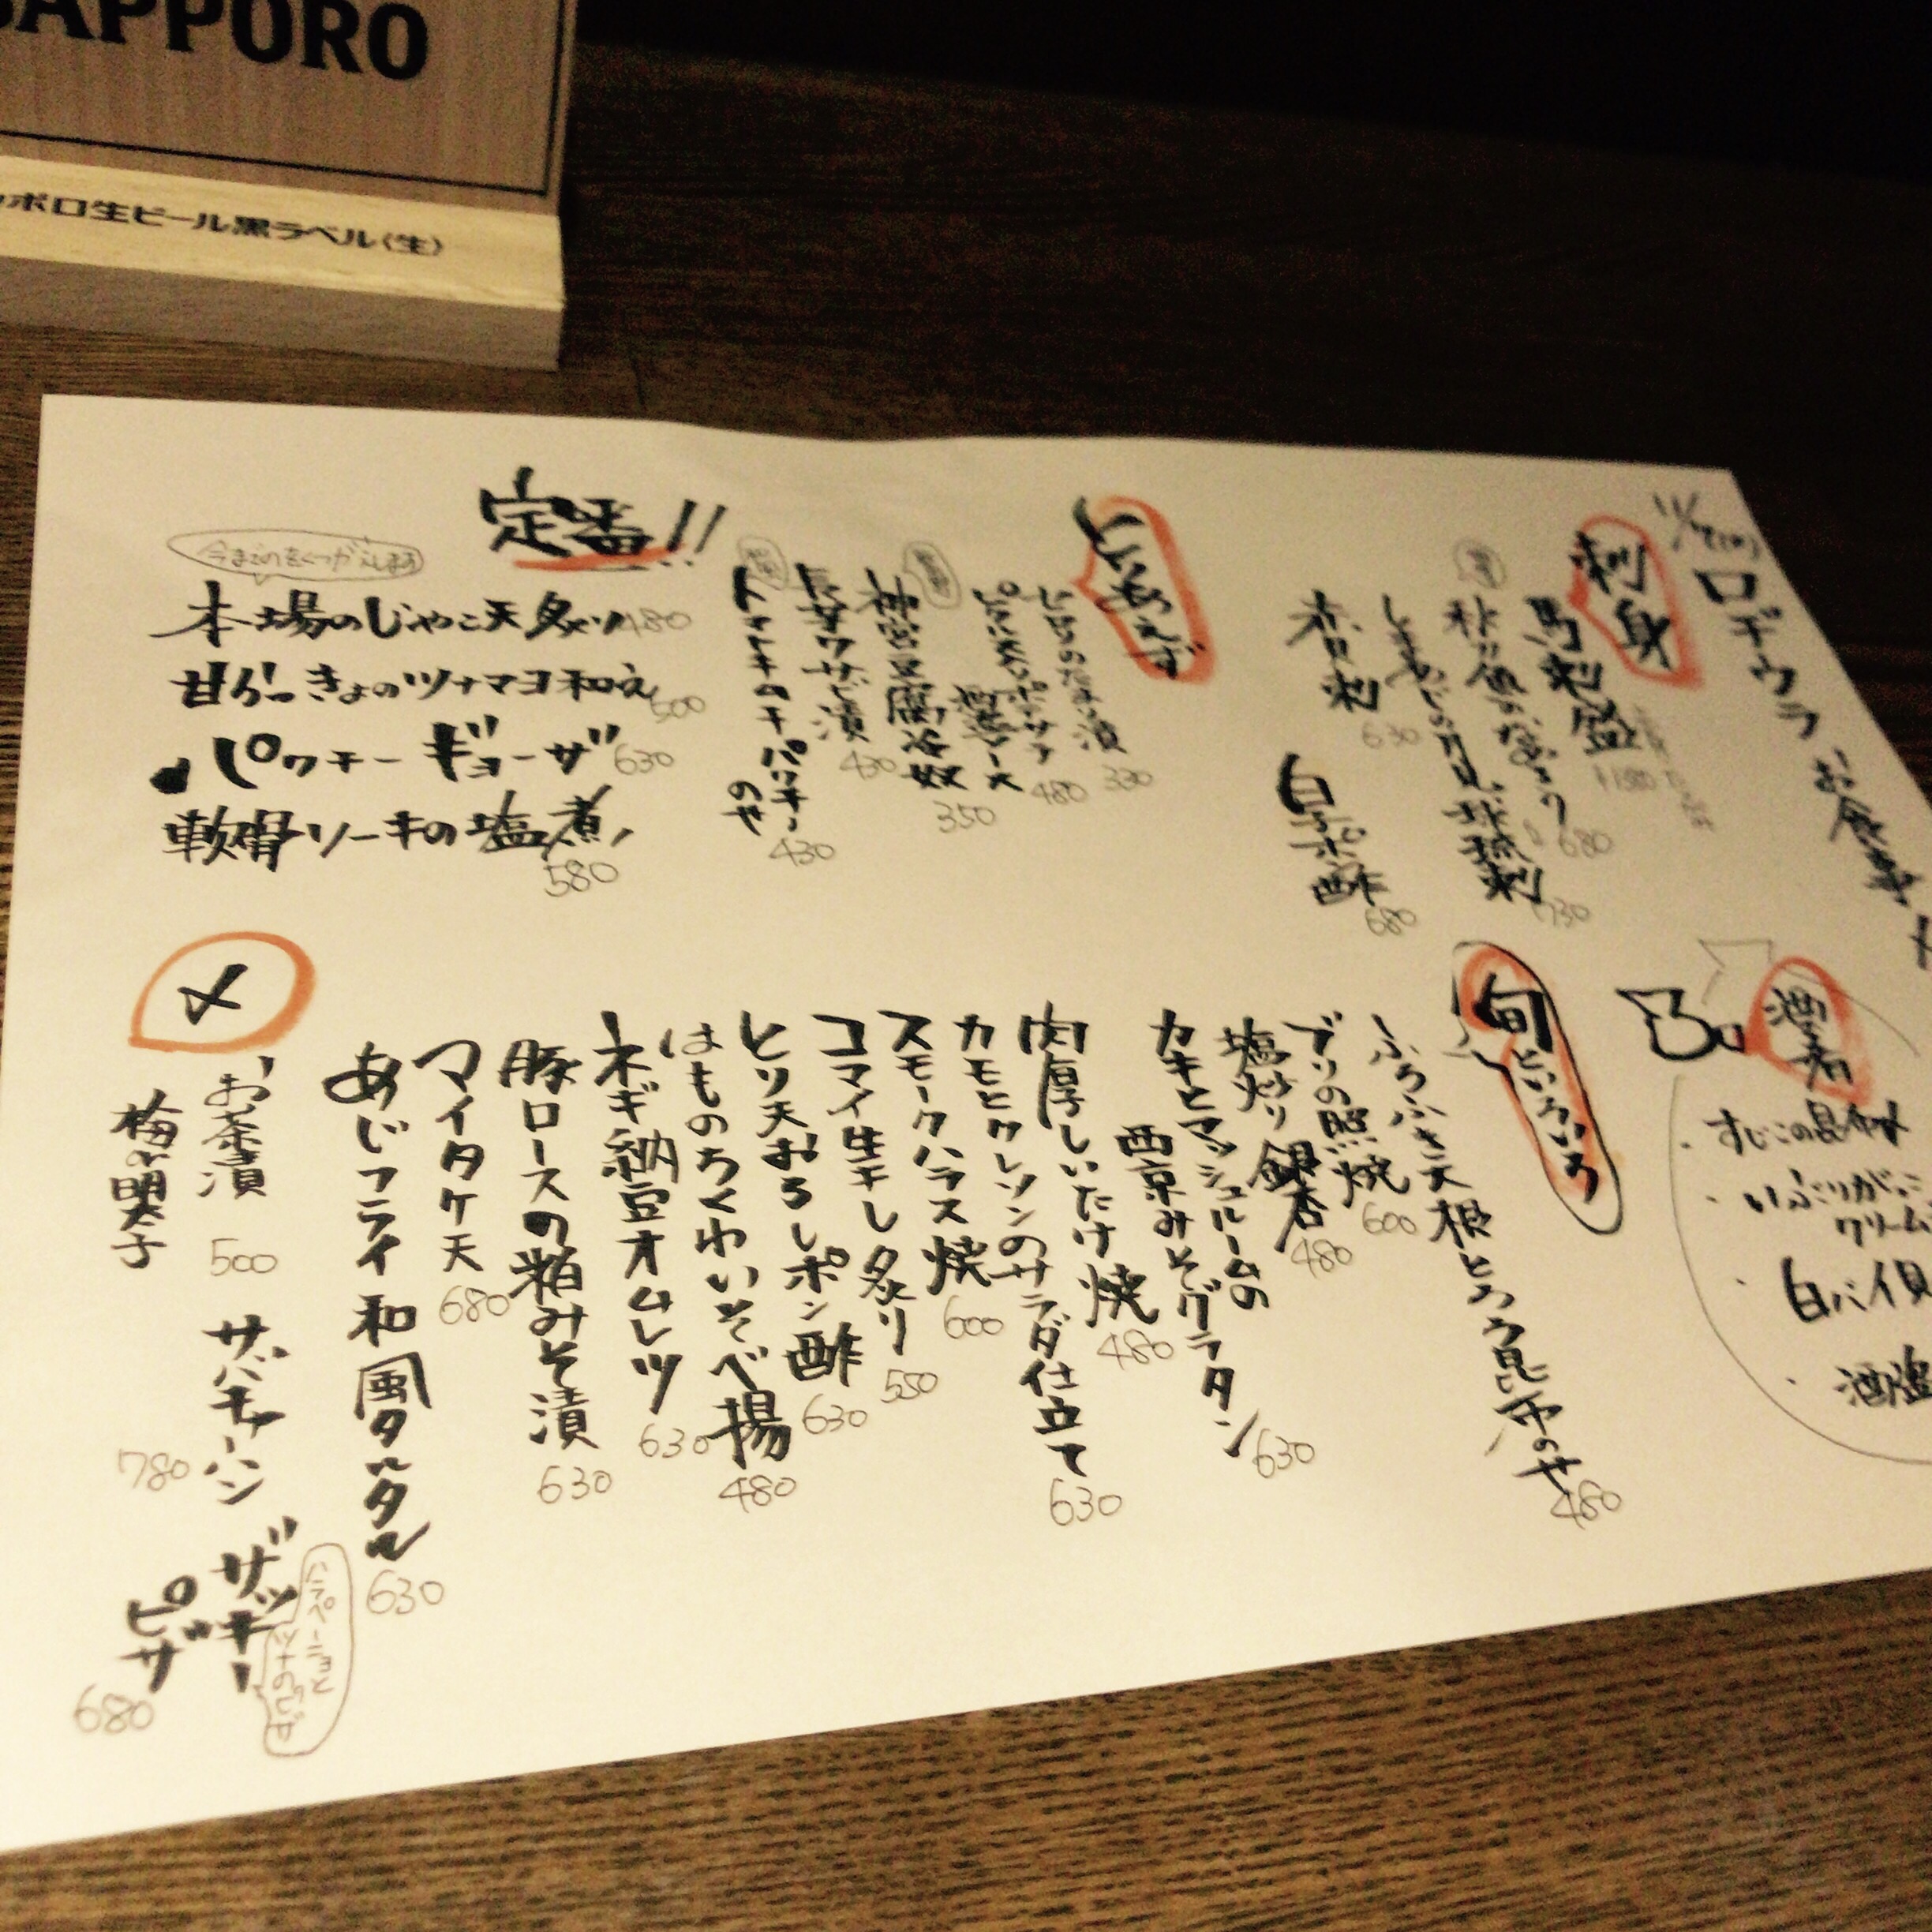 SAPPORO
ポロ生ビール黒ラベル(生)
ロヂウラ お食事
刺身
馬刺盛
680
730
赤貝刺
630
白子ポン酢
680
とりあえず
330
480
神宮豆腐冷奴
350
長芋ワサビ漬
430
430
定番!!
本場のじゃこ天炙り 480
ツナマヨ和え 500
パクチーギョーザ 630
軟骨ソーキの塩煮 580
酒肴
・すじこの昆布
・いぶりがっこ
クリーム
・白バイ貝
・酒塩
旬といろいろ
ふろふき大根とろろ昆布のせ 480
ブリの照焼 600
塩炒り銀杏 480
カキとマッシュルームの
西京みそグラタン 630
肉厚しいたけ焼 480
カモとクレソンのサラダ仕立て 630
スモークハラス焼 600
コマイ生干し炙り 550
とり天おろしポン酢 630
はものちくわいそべ揚 480
ネギ納豆オムレツ 630
豚ロースの粕みそ漬 630
マイタケ天 680
あじフライ和風タルタル 630
〆
お茶漬 500
梅 明太子
サバチャーハン 780
ザッキーピザ 680
ハラペーニョと
ツナのピザ